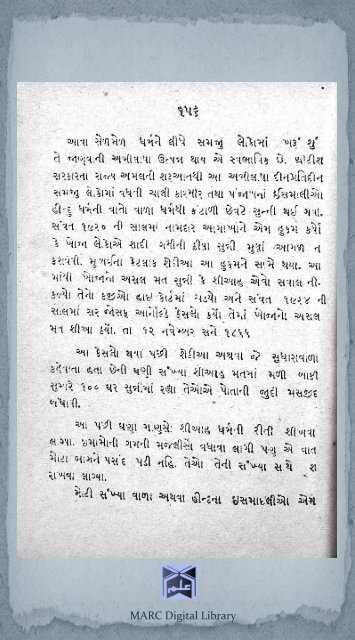 ૧૫૬
આવા સેળભેળ ધર્મને લીધે સમજુ લોકોમાં ખરૂં શું
તે જાણવાની અભીલાષા ઉત્પન્ન થાય એ સ્વભાવિક છે. બ્રીટીશ
સરકારના રાજ્ય અમલની શરૂઆતથી આ અભીલાષા દીનપ્રતિદીન
સમજુ લોકોમાં વધતી ચાલી કાશ્મીર તથા પંજાબનાં ઈસમાઈલીઓ
હીન્દુ ધર્મની વાતો વાળા ધર્મથી કંટાળી છેવટે સુન્ની થઈ ગયા.
સંવત ૧૯૨૦ ની સાલમાં નામદાર આગાખાંને એમ હુકમ કર્યો
કે ખોજા લોકોએ શાદી ગમીની ક્રીયા સુન્ની મુલાં આગળ ન
કરાવવી. મુંબઈના કેટલાક શેઠીઆ આ હુકમને સામે થયા. આ
માંથી ખોજાનો અસલ મત સુન્ની કે શીઆહ એવો સવાલ ની-
કળ્યો તેનો કજીઓ હાઈ કોર્ટમાં ચડયો અને સંવત ૧૯૨૪ ની
સાલમાં સર જોસફ આર્નોલ્ડે ફેંસલો કર્યો તેમાં ખોજાનો અસલ
મત શીઆ ઠર્યો. તા ૧૨ નવેમ્બર સને ૧૮૬૬
આ ફેંસલો થયા પછી શેઠીઆ અથવા જે સુધારાવાળા
કહેવાતા હતા તેની ઘણી સંખ્યા શીઆહ મતમાં મળી બાકી
સુમારે ૧૦૦ ઘર સુન્નીમાં રહ્યા તેઓએ પોતાની જુદી મસજીદ
બંધાવી.
આ પછી ઘણા માણસો શીઆહ ધર્મની રીતી શીખવા
લાગ્યા. ઇમામોની ગમની મજલીસો વધાવા લાગી પણ એ વાત
મોટા ભાગને પસંદ પડી નહિ. તેઓ તેની સંખ્યા સાથે
રાખવા લાગ્યા.
મોટી સંખ્યા વાળા અથવા હીન્દના ઇસમાઈલીઓ એમ
MARC Digital Library